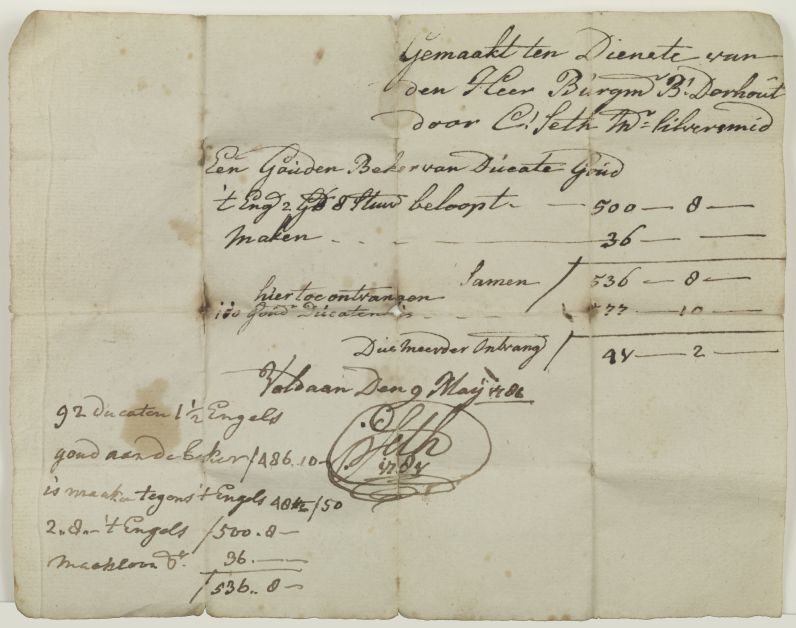 Gemaakt ten Dienste van
den Heer Burgmr Bt Dorhout
door Ct Seth Mr Silversmid
Een Gouden Beker van Ducate Goud
't Eng 2 Gl 8 Stuv beloopt - 500 - 8 -
Maken - 36 - -
Samen / 536 - 8 -
hier toe ontvangen
110 Goud Ducaten is - 577 - 10 -
Dus meerder Ontvang / 41 - 2 -
Voldaan Den 9 Maij 1786
C Seth
92 ducaten 1 1/2 Engels
goud aan de beker / 486..10 -
is maaken tegens 't Engels
2..8..- 't Engels / 500.8 -
maakloon dr. 36. -
/ 536.. 8 -